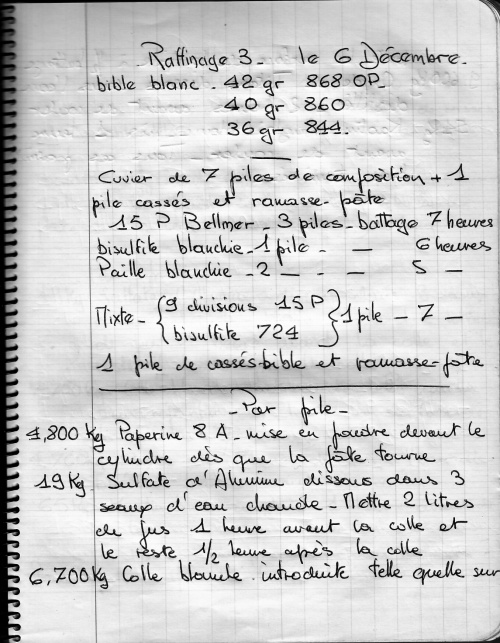 Raffinage 3_ le 6 Décembre_
bible blanc. 42 gr 868 OP_
40 gr 860
36 gr 844.
Cuvier de 7 piles de composition + 1
pile cassés et ramasse-pâte
15 P Bellmer_ 3 piles_ battage 7 heures
bisulfite blanchie_ 1 pile_ _ 6 heures
Paille blanchie _ 2 _ . _ _ 5 _
Mixte_ { 9 divisions 15 P
bisulfite 724 } 1 pile _ 7 _
1 pile de cassés-bible et ramasse-pâte
_Par pile_
1,800 Kg Paperine 8 A_ mise en poudre devant le
cylindre dès que la pâte tourne
19 Kg Sulfate d'Alumine dissous dans 3
seaux d'eau chaude_ Mettre 2 litres
de jus 1 heure avant la colle et
le reste 1/2 heure après la colle
6,700 Kg Colle blanche introduite telle quelle sur